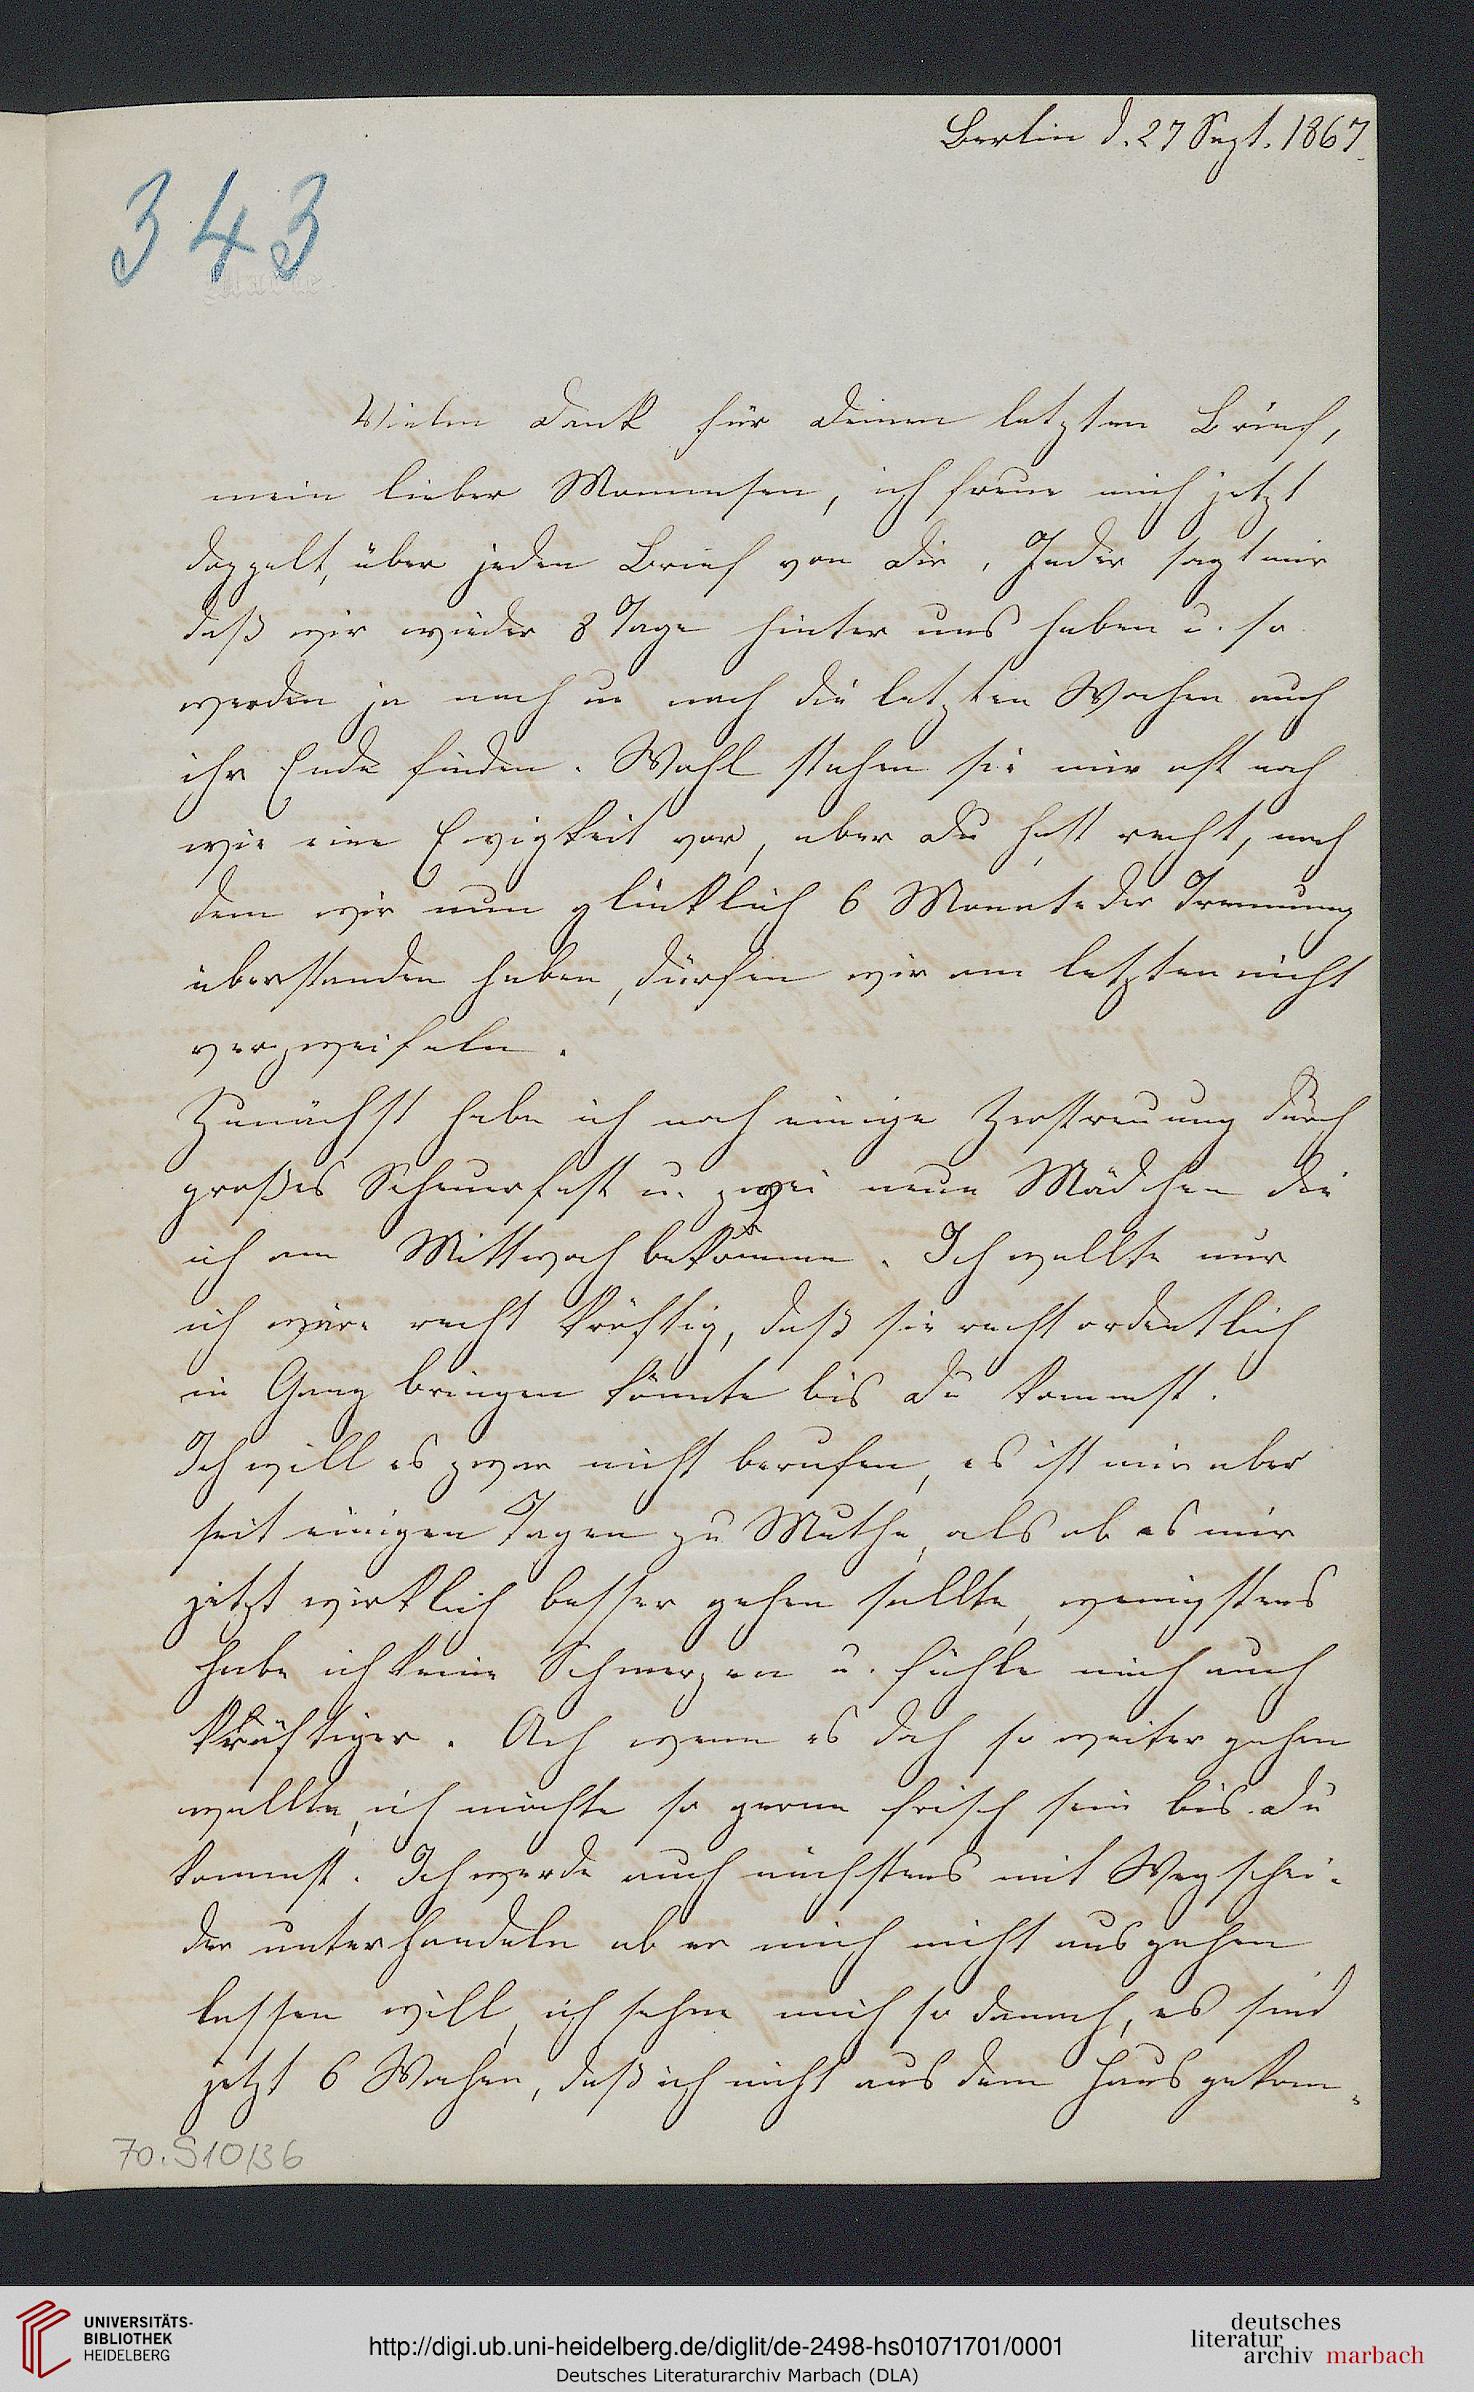 Berlin d. 27 Sept. 1867.
343
Vielen Dank für Deinen letzten Brief,
mein lieber Mommsen, ich freue mich jetzt
doppelt, über jeden Brief von Dir, Jeder sagt mir
daß wir wieder 8 Tage hinter uns haben u. so
werden ja nach u nach die letzten Wochen auch
ihr Ende finden. Wohl stehen sie mir oft noch
wie eine Ewigkeit vor, aber Du hast recht, nach
dem wir nun glücklich 6 Monate der Trennung
überstanden haben, dürfen wir am letzten nicht
verzweifeln.
Zunächst habe ich noch einige Zerstreuung durch
großes Scheuerfest u. zwei neue Mädchen die
ich am Mittwoch bekomme. Ich wollte nur
ich wäre recht kräftig, daß sie recht ordentlich
in Gang bringen könnte bis Du kommst.
Ich will es zwar nicht berufen, es ist mir aber
seit einigen Tagen zu Muthe, als ob es mir
jetzt wirklich besser gehen sollte, wenigstens
habe ich keine Schmerzen u. fühle mich auch
kräftiger. Ach wenn es doch so weiter gehen
wollte, ich möchte so gerne frisch sein bis Du
kommst. Ich werde auch nächstens mit Wegschei-
der unterhandeln ob er mich nicht ausgehen
lassen will, ich sehne mich so danach, es sind
jetzt 6 Wochen, daß ich nicht aus dem Haus gekom-
70.S10/36
UNIVERSITÄTS-
BIBLIOTHEK
HEIDELBERG
http://digi.ub.uni-heidelberg.de/diglit/de-2498-hs01071701/0001
Deutsches Literaturarchiv Marbach (DLA)
deutsches
literatur
archiv marbach